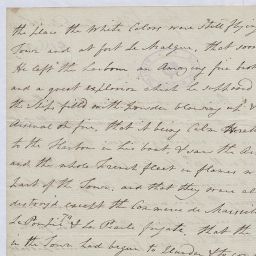 the place the White Colors were still flying
Town and at fort de Malgue, that soon
He left the harbour an Amazing fire broke
and a great explosion which he supposed
the Ships filled with Powder blowing up, &
Arsenal on fire, that it being Calm He
to the Harbour in his boat, & saw the Ar
and the whole French fleet in flames
part of the Town, and that they were al
destroyd except the Commerce de Marseil
Le Pompée & La Pearle frigate, that the
in the Town had begun to Plunder & to